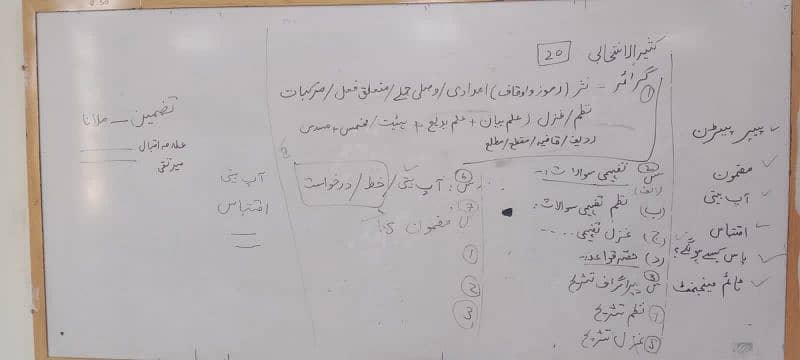 کثیر الانتخابی 20
① گرائمر - نثر (رموز و اوقاف) / امدادی / وصلی جملے / متعلق فعل / مرکبات
نظم / غزل / علم بیان + علم بدیع + ہیئت / مخمس + مسدس
ردیف / قافیہ / مقطع / مطلع
پیپر پیٹرن
مضمون
آپ بیتی
اقتباس
پاس کیسے ہونگے؟
ٹائم مینجمنٹ
② س تفہیمی سوالات:
(الف)
(ب) نظم تفہیمی سوالات:
(ج) غزل تفہیمی .....
(د) حصہ قواعد:
③ س پیراگراف تشریح
نظم تشریح
⑤ غزل تشریح
⑥ س: آپ بیتی / خط / درخواست
⑦ س مضمون
①
②
③
آپ بیتی
اقتباس
تضمین - ملانا
علامہ اقبال
میر تقی